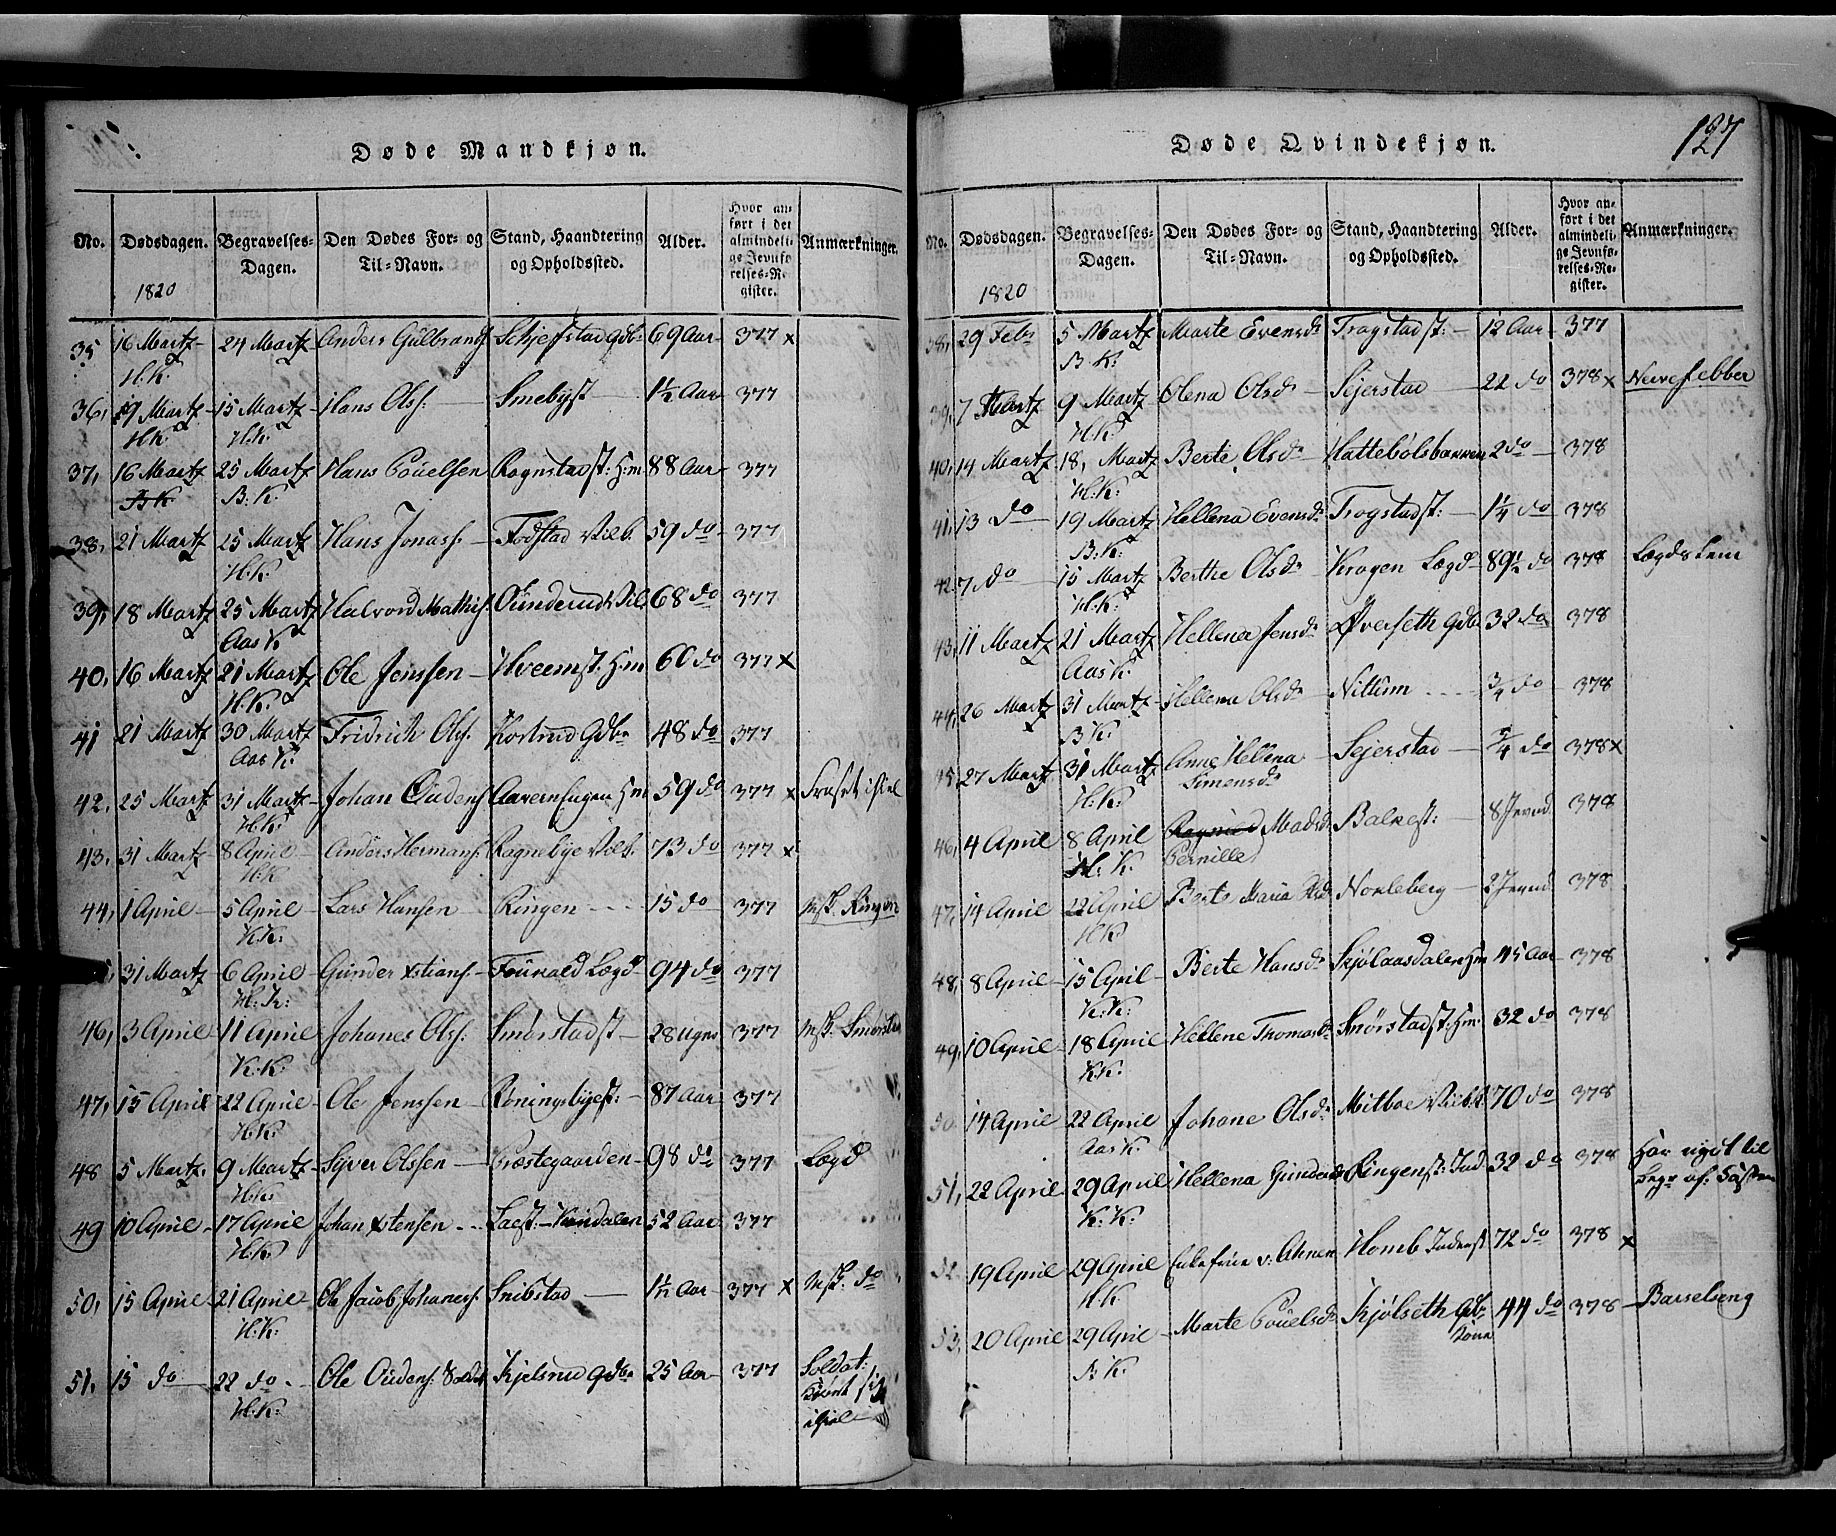 Døde Mandkjøn.
No. Dødsdagen. Begravelses-Dagen. Den Dødes For- og Til-Navn. Stand, Haandtering og Opholdssted. Alder. Hvor anført i det almindelige Jevnførelses-Register. Anmærkninger.
1820
35 16 Martz 24 Martz Anders Gulbrands: Schjefstad Gdb: 69 Aar 377 x
H.K.
36, 9 Martz 15 Martz Hans Ols: Smebyst 1½ Aar 377
H.K. H.K.
37, 16 Martz 25 Martz Hans Pouelsen Rognstadst: H:m 88 Aar 377
B.K. B.K.
38, 21 Martz 25 Martz Hans Jonas: Fodstad Vilb. 59 do 377
H.K.
39, 18 Martz 25 Martz Halvord Mathis: Ounderud Vil. 68 do 377
Aas K.
40, 16 Martz 21 Martz Ole Jenssen Hveemst: H:m 60 do 377 x
H.K.
41 21 Martz 30 Martz Fridrich Ols: Kortrud Gdbr 48 do 377
Aas K.
42, 25 Martz 31 Martz Johan Oudens: H:m 59 do 377 x
H.K.
43, 31 Martz 8 April Anders Hermans: Ragnebye Vilb. 73 do 377 x
H.K.
44, 1 April 5 April Lars Hansen Ringen 15 do 377 Msk. Ringen
K.K:
31 Martz 6 April Gunder Xstians: Fouvald Lægd 94 do 377
H.K:
46, 3 April 11 April Johanes Ols: Smørstadst 28 Uger 377
K.K:
47, 15 April 22 April Ole Jenssen Røningsbyest: 87 Aar 377
H.K:
48 5 Martz. 9 Martz Syver Olssen Præstegaarden 98 do 377 Lægd
H.K:
49 10 April 17 April Johan Xstensen 52 Aar 377
H.K:
50, 15 April 21 April Ole Jacob Johanes: Snibstad Aar 377 x Msk. do
H.K:
51, 15 do 22 do Ole Oudens: Soldat Kjelsrud Gdbr 25 Aar 377 Soldat:
H.K:
Døde Qvindekjøn.
127
No. Dødsdagen. Begravelses-Dagen. Den Dødes For- og Til-Navn. Stand, Haandtering og Opholdssted. Alder. Hvor anført i det almindelige Jevnførelses-Register. Anmærkninger.
1820
38, 29 Febr 5 Martz Marte Evensd: Trogstadst: 12 Aar 377
B.K:
39, 7 Martz 9 Martz Olena Olsd: Sejerstad 22 do 378 x Nervefebber
H.K:
40, 14 Martz 18, Martz Berte Olsd: Hattebølsbakken 2 do 378
H.K:
41, 13 do 19 Martz Hellena Evensd: Trogstadst: 1¼ do 378
B.K:
42. 7 do 15 Martz Berthe Olsd: Krogen Lægd 89½ do 378 Lægds Lem
H.K:
43, 11 Martz 21 Martz Hellena Jensd: Øverseth Gdb: 32 do 378
Aas K.
44, 26 Martz 31 Martz Hellena Olsd: Nittum ¾ do 378
B.K:
45, 27 Martz 31 Martz Anne Hellena Simensd: Sejerstad do 378 x
H.K:
46, 4 April 8 April Ragnild Madsd: Balkest: 8 378
H.K. Pernille
47, 14 April 22 April Berte Maria Nokleberg 2 378
H.K:
48, 8 April 15 April Berte Hansd: Skjølaasdalen H:m 45 Aar 378
K.K:
49, 10 April 18 April Hellene Thomasd: Smørstadst: H:m: 32 do 378
K.K:
50. 14 April 22 April Johane Olsd: Mitboe Vilb: 70 do 378
Aas K.
51, 22 April 29 April Hellena Gunders Ringenst: Ind 32 do 378 Har nydt til
K.K: Begr: af
52 19 April 29 April Enkefrue v: Homb Inderst 72 do 378 x
H.K:
53, 20 April 29 April Marte Pouelsd: Kjølseth Gdb: kone 44 do 378 Barselseng
B.K: